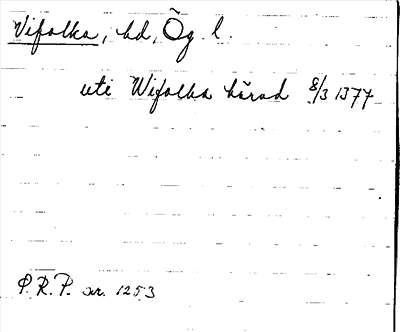 Vifolka, hd, Ög. l.
uti Wifolka härad 8/3 1377
P.R.P. nr. 1253